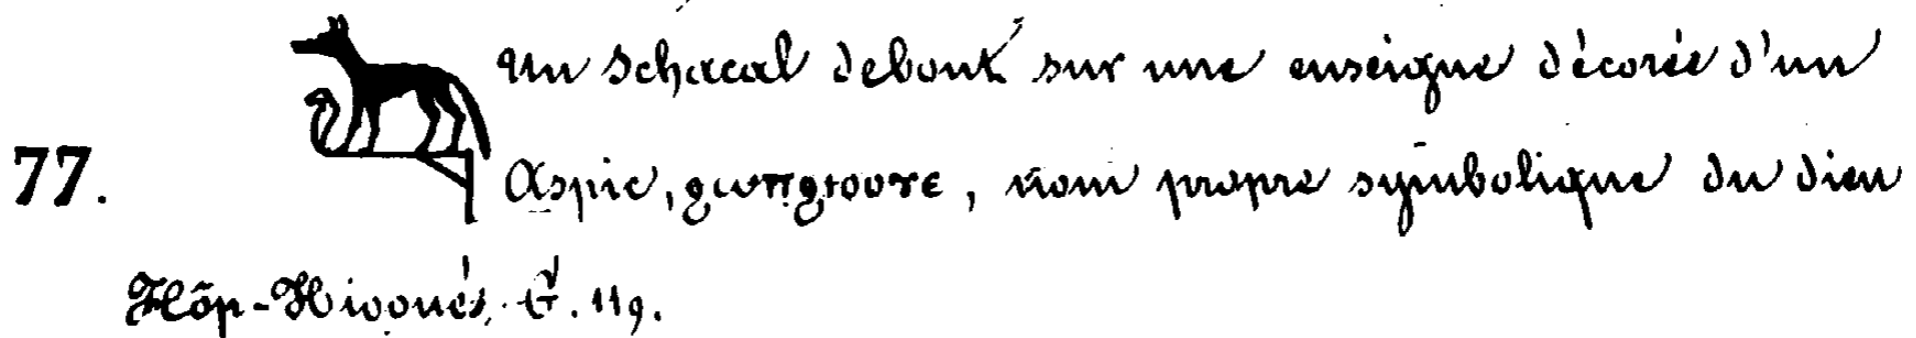 Un schacal debout sur une enseigne décorée d'un
77. Aspic, ϩⲱⲡϩⲓⲟⲟⲩⲉ, nom propre symbolique du dieu
Hôp-Hiooué. G. 119.